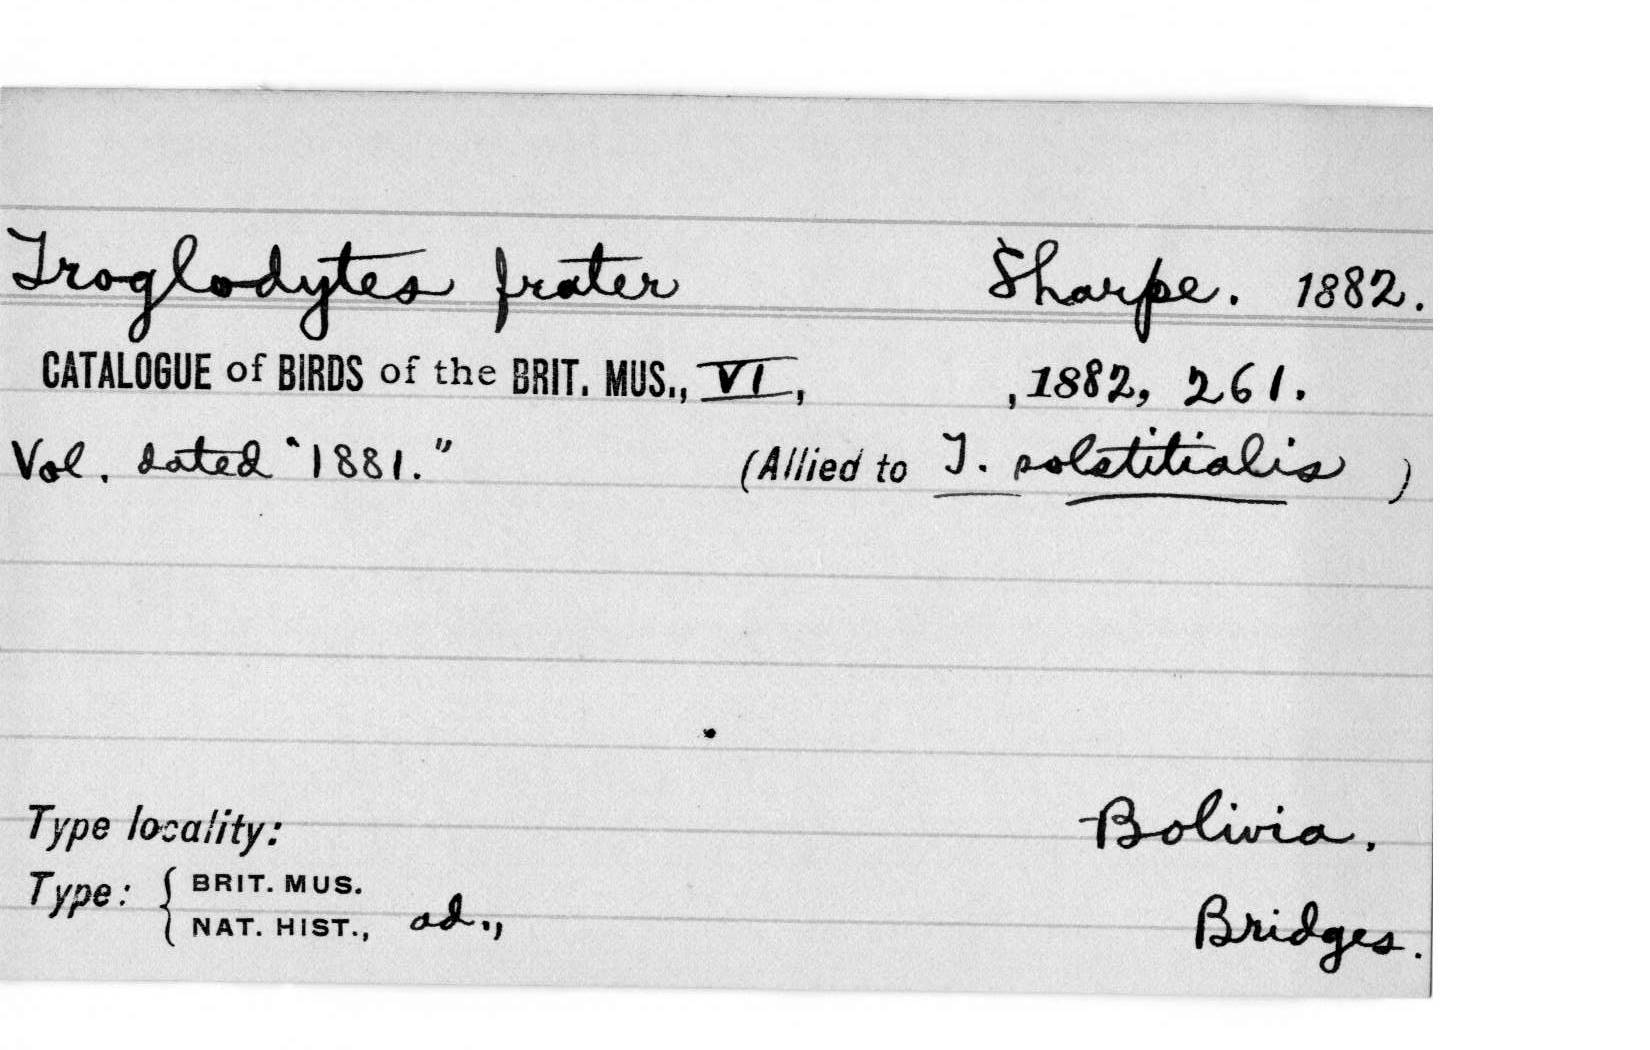 Troglodytes frater Sharpe. 1882.
CATALOGUE of BIRDS of the BRIT. MUS., VI, , 1882, 261.
Vol. dated "1881." (Allied to T. solstitialis )
Type locality: Bolivia,
Type: { BRIT. MUS. NAT. HIST., ad., Bridges.